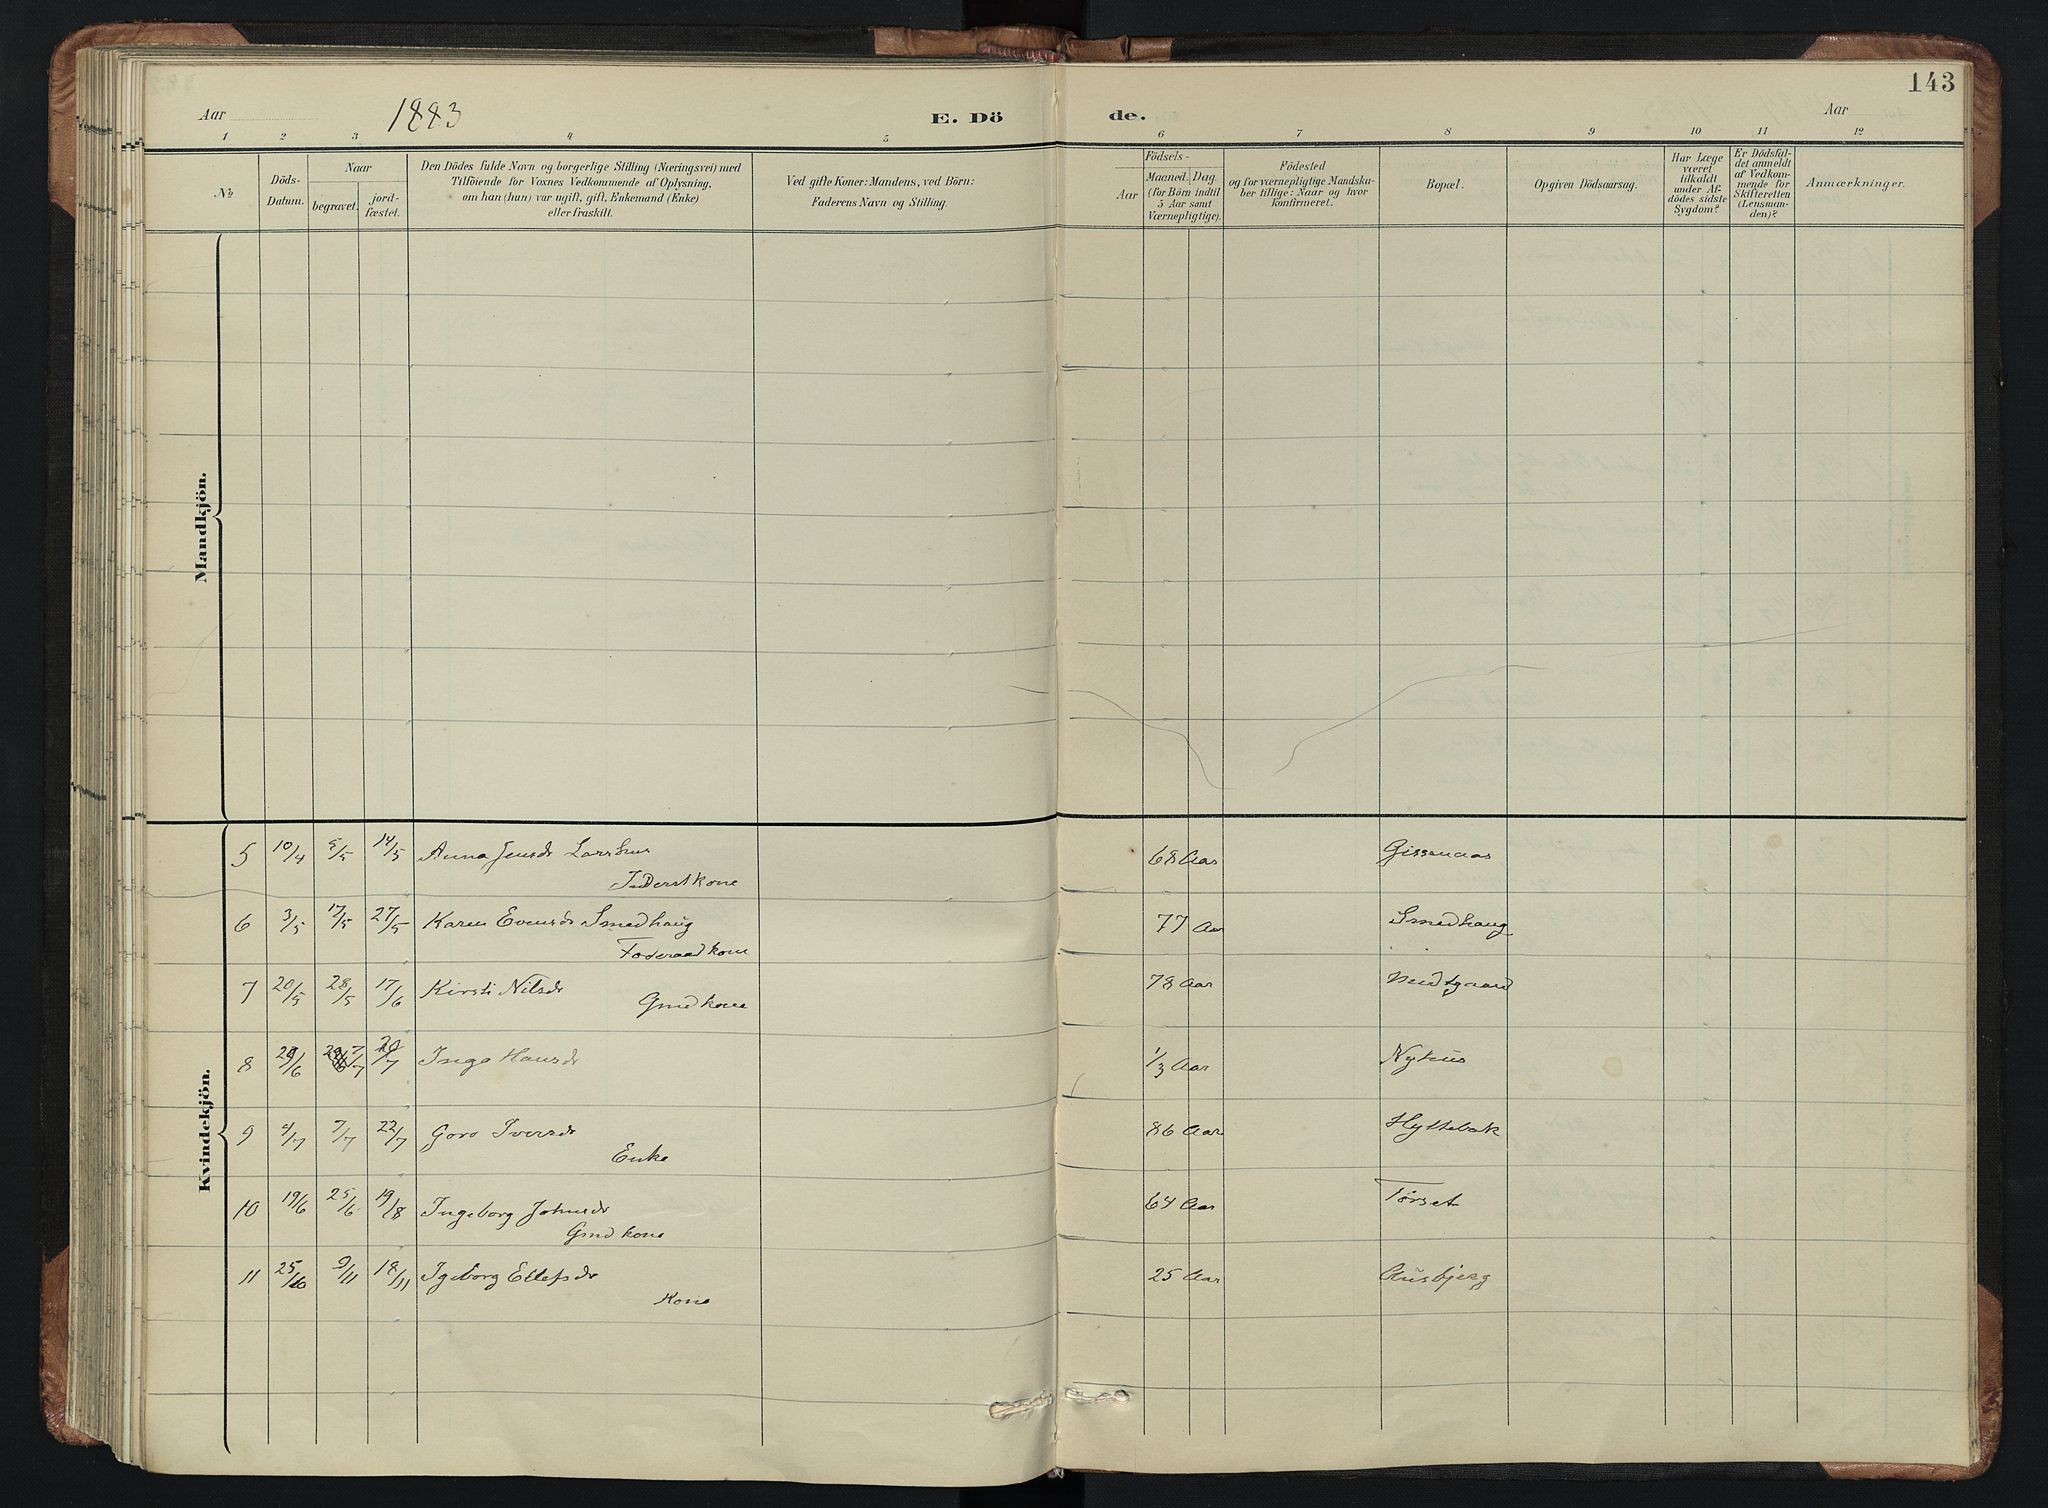 143
Aar 1883 E. Dö de. Aar
1 2 3 4 5 6 7 8 9 10 11 12
No
Döds-Datum.
Naar
begravet.
jord-fæstet.
Den Dödes fulde Navn og borgerlige Stilling (Næringsvei) med
Tilföiende for Voxnes Vedkommende af Oplysning,
om han (hun) var ugift, gift, Enkemand (Enke)
eller fraskilt.
Ved gifte Koner: Mandens, ved Börn:
Faderens Navn og Stilling.
Födsels-
Aar
Maaned. Dag.
(for Börn indtil
5 Aar samt
Værnepligtige).
Födested
og for værnepligtige Mandska-
ber tillige: Naar og hvor
konfirmeret.
Bopæl.
Opgiven Dödsaarsag.
Har Læge
været
tilkaldt
under Af-
dödes sidste
Sygdom?
Er Dödsfal-
det anmeldt
af Vedkom-
mende for
Skifteretten
(Lensman-
den)?
Anmærkninger.
Mandkjön.
Kvindekjön.
5 10/4 5/5 14/5 Anna Jensdr Larshus 68 Aar Gissenaas
Inderstkone
6 3/5 17/5 27/5 Karen Evensdr Smedhaug 77 Aar Smedhaug
Foderaadkone
7 20/5 28/5 17/6 Kirsti Nilsdr 78 Aar
Gmdkone
8 28/6 7/7 20/7 Inga Hansdr 1/3 Aar Nyhus
9 4/7 7/7 22/7 Goro Iversdr 86 Aar Hyttebak
Enke
10 19/6 25/6 19/8 Ingeborg Johnsdr 64 Aar Törset
Gmdkone
11 25/10 9/11 18/11 Igeborg Ellefsdr 25 Aar Ausbjerg
Kone